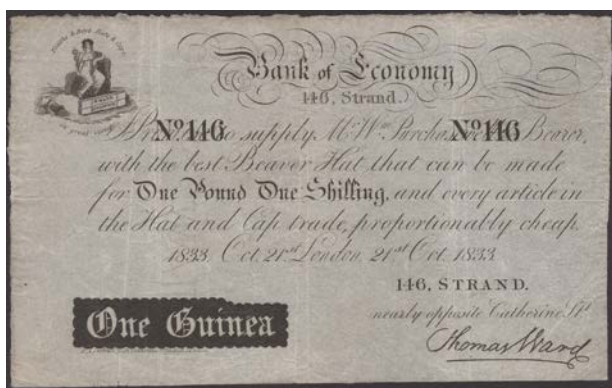 Bank of Economy
146, Strand.
I Promise to supply Mr. Wm. Purcha or Bearer,
No 146 No 146
with the best Beaver Hat that can be made
for One Pound One Shilling, and every article in
the Hat and Cap trade, proportionably cheap.
1833. Oct. 21st London, 21st Oct. 1833.
146, STRAND.
nearly opposite Catherine St.
One Guinea
Thomas Ward